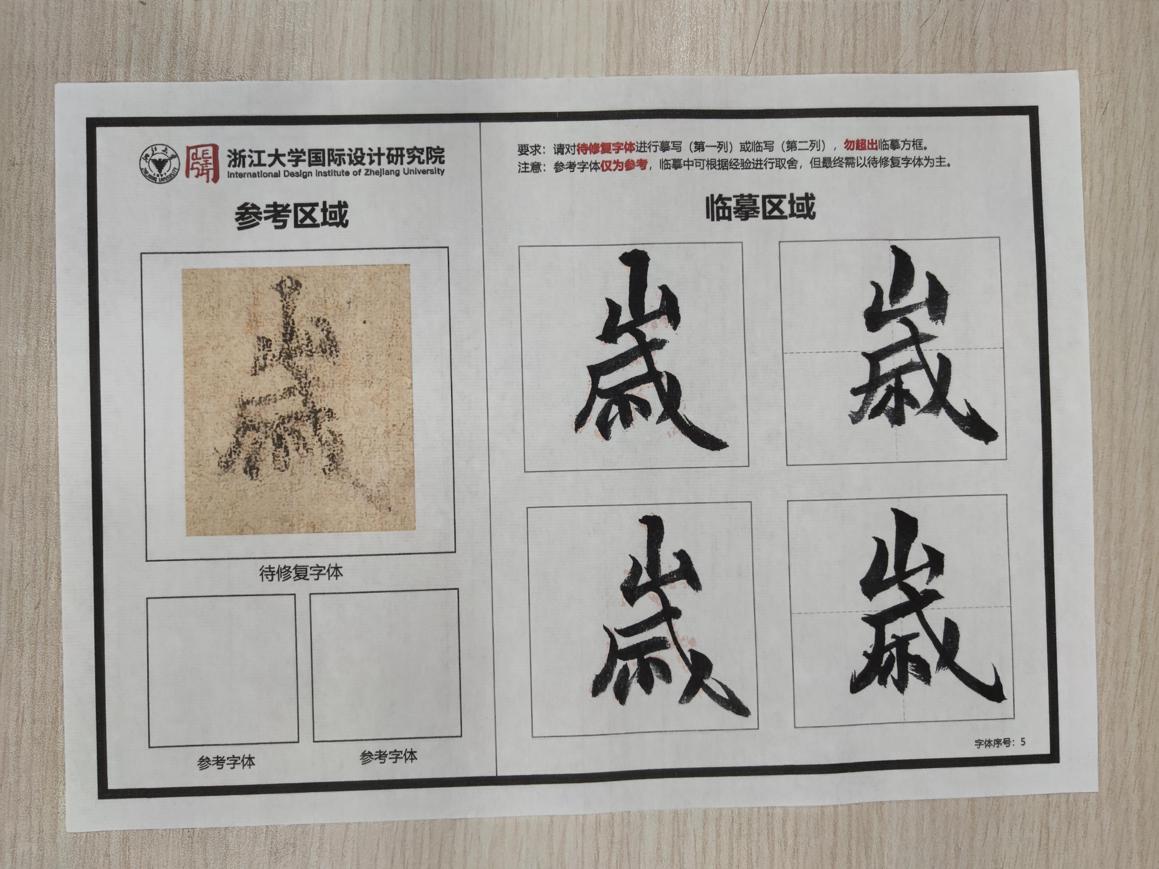 浙江大学国际设计研究院
International Design Institute of Zhejiang University
参考区域
待修复字体
参考字体
参考字体
要求：请对待修复字体进行摹写（第一列）或临写（第二列），勿超出临摹方框。
注意：参考字体仅为参考，临摹中可根据经验进行取舍，但最终需以待修复字体为主。
临摹区域
歲
歲
歲
歲
歲
字体序号：5